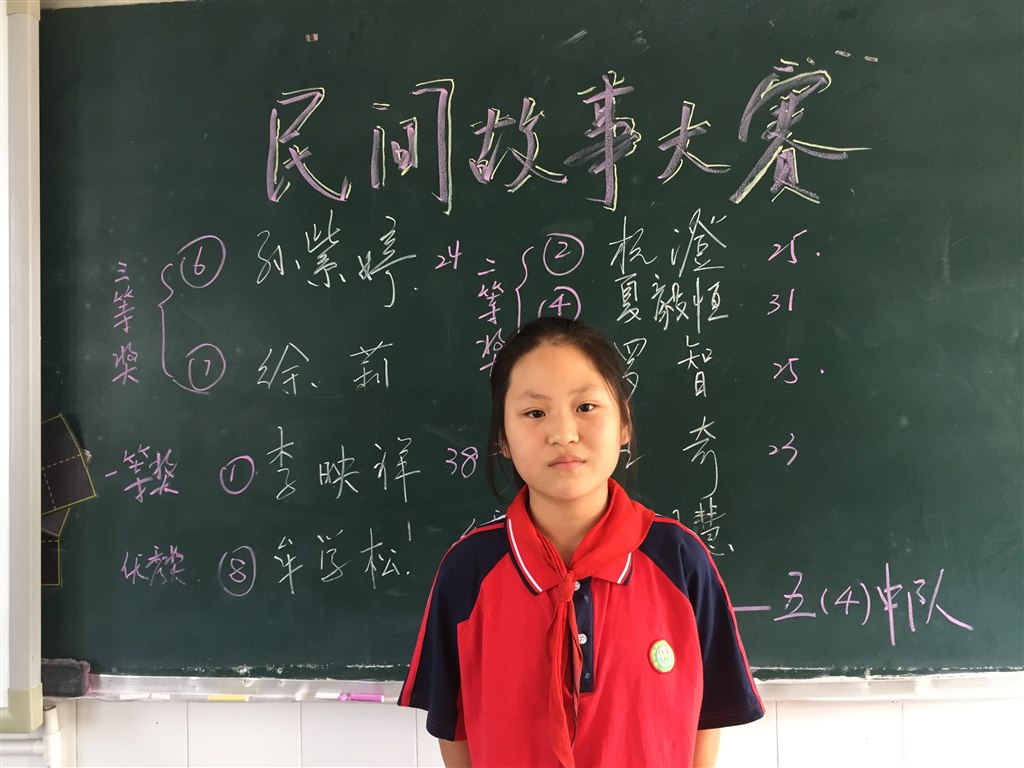 民间故事大赛
三等奖 ⑥ 孙紫婷 24
⑦ 徐莉
二等奖 ② 杭澄 25.
④ 夏毅恒 31
智 25.
奇 23
一等奖 ① 李映祥 38
优秀奖 ⑧ 牟学松!
慧
五(4)中队